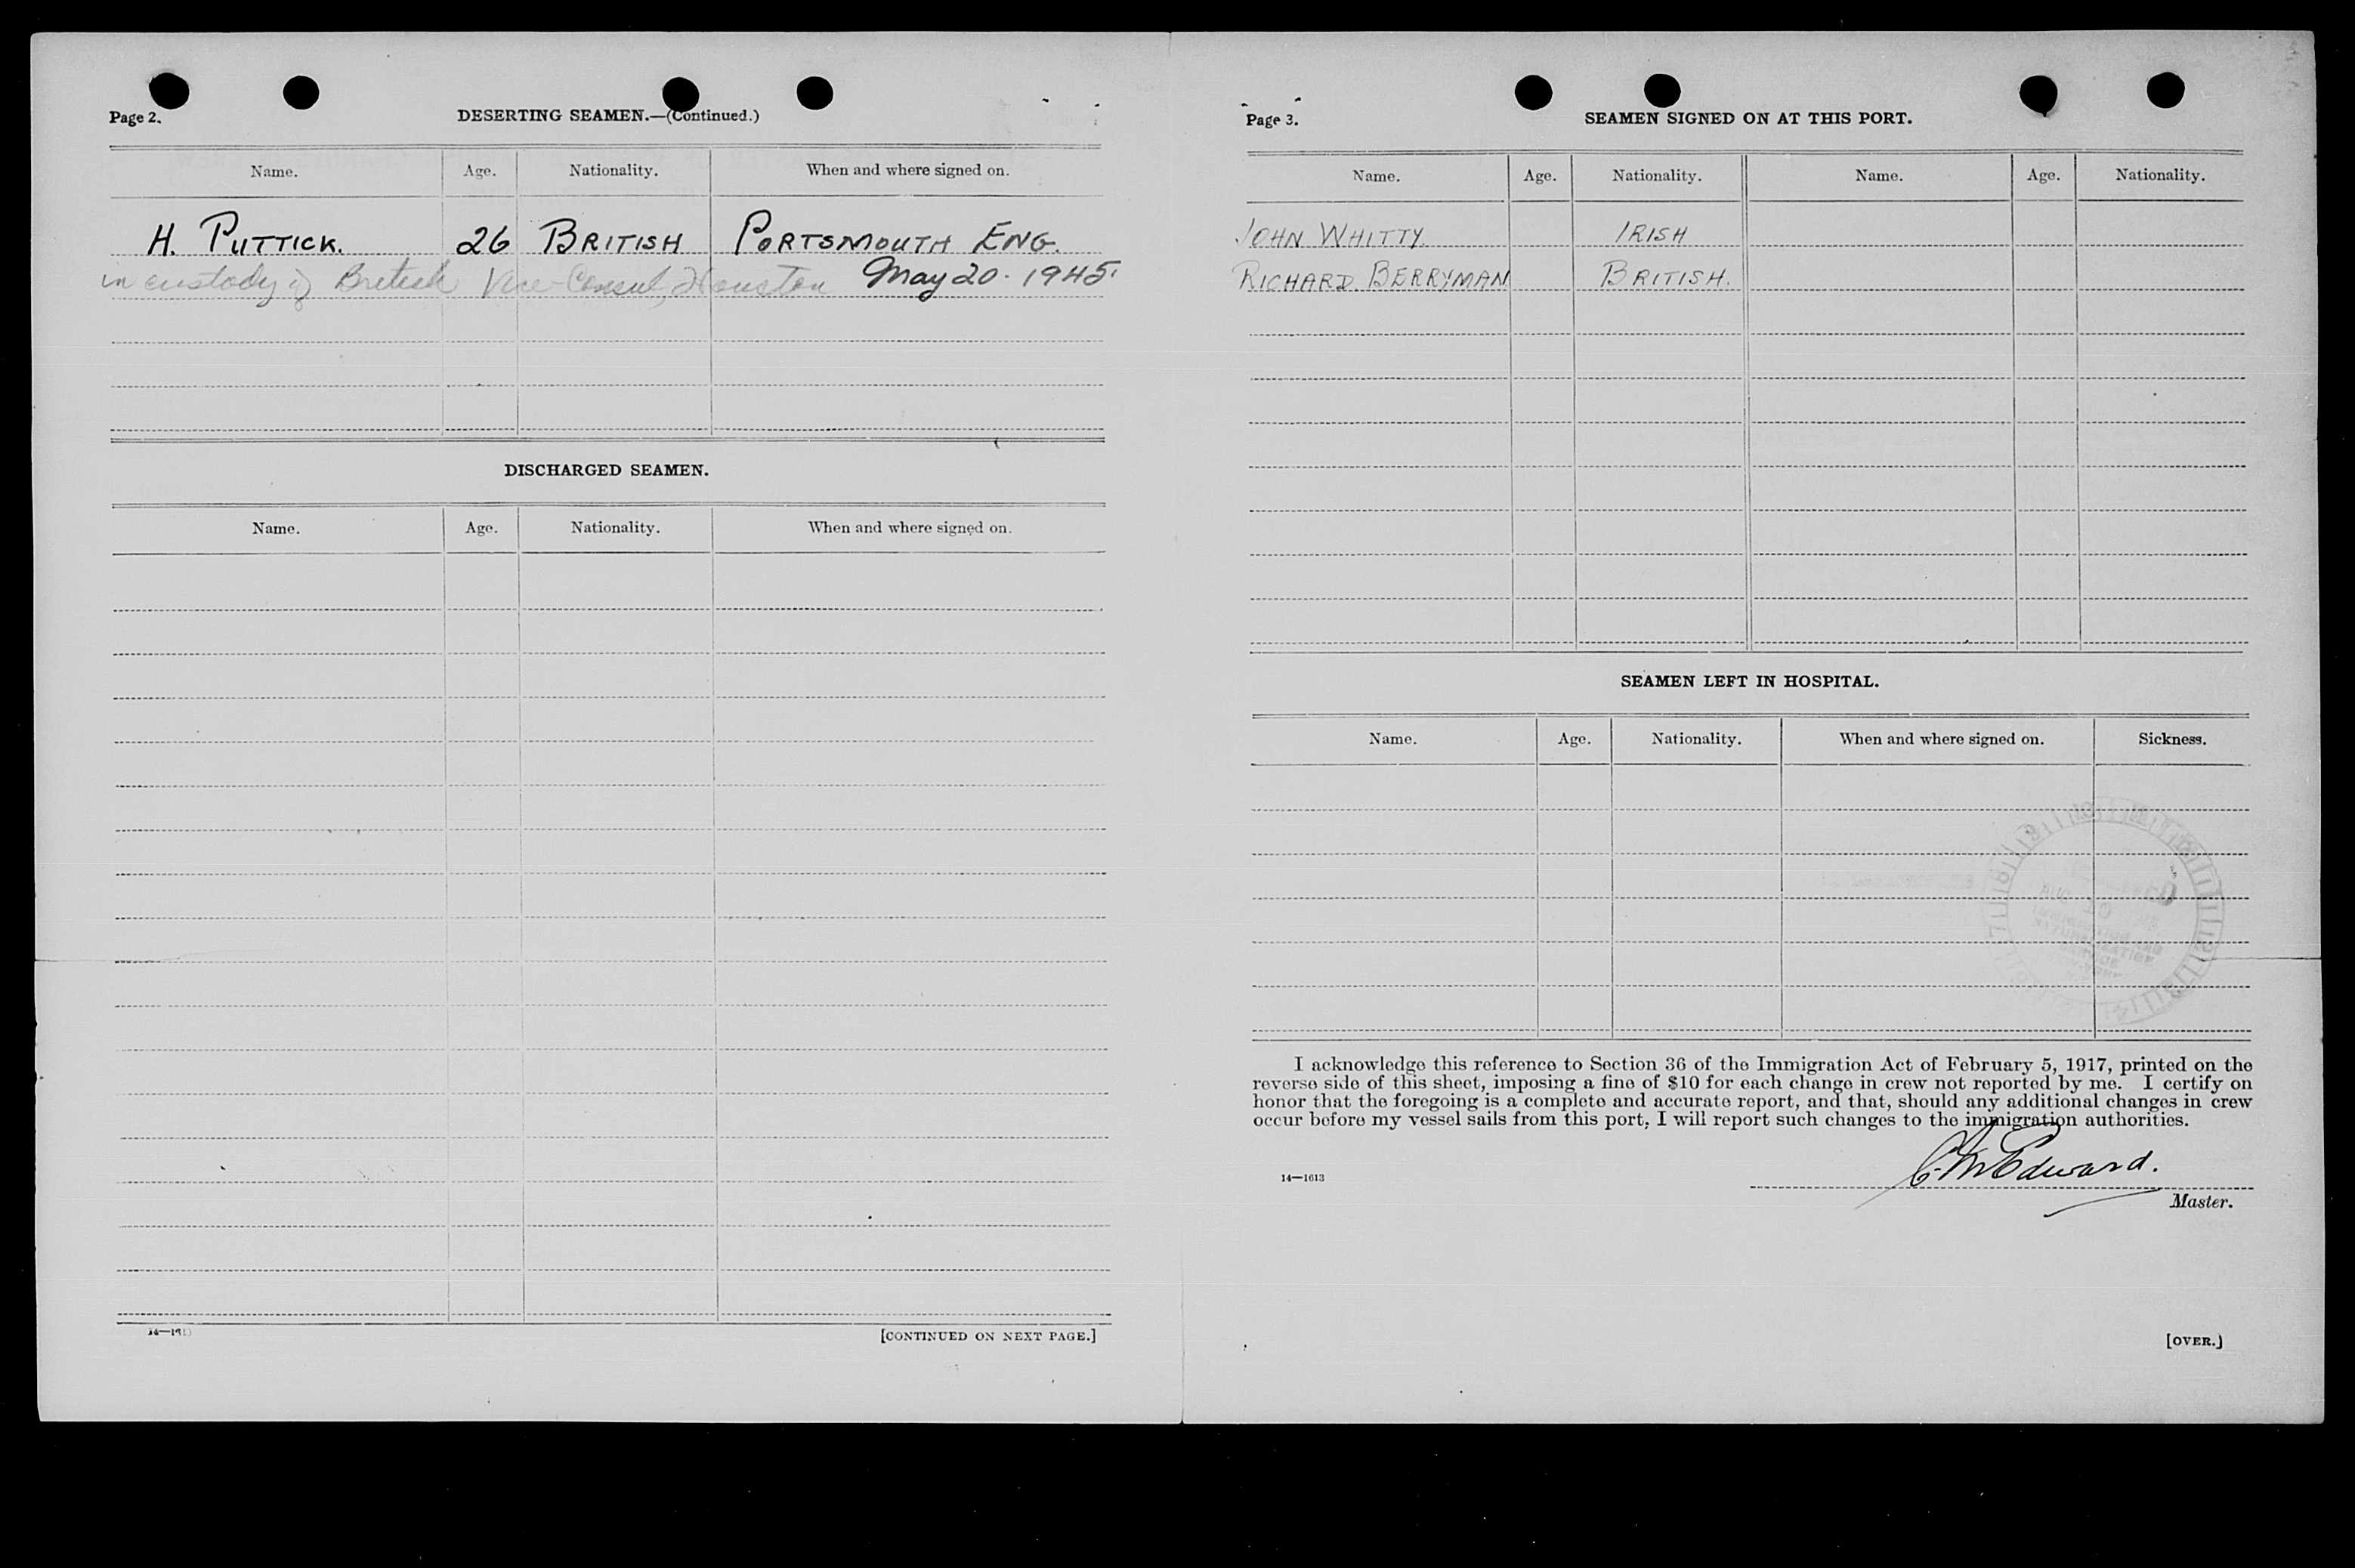 Page 2.
DESERTING SEAMEN.—(Continued.)
Name. Age. Nationality. When and where signed on.
H. PUTTICK. 26 BRITISH PORTSMOUTH ENG.
in custody of British Vice-Consul, Houston May 20. 1945.
DISCHARGED SEAMEN.
Name. Age. Nationality. When and where signed on.
[CONTINUED ON NEXT PAGE.]
Page 3.
SEAMEN SIGNED ON AT THIS PORT.
Name. Age. Nationality. Name. Age. Nationality.
JOHN WHITTY. IRISH
RICHARD BERRYMAN BRITISH.
SEAMEN LEFT IN HOSPITAL.
Name. Age. Nationality. When and where signed on. Sickness.
AUG 10
I acknowledge this reference to Section 36 of the Immigration Act of February 5, 1917, printed on the
reverse side of this sheet, imposing a fine of $10 for each change in crew not reported by me. I certify on
honor that the foregoing is a complete and accurate report, and that, should any additional changes in crew
occur before my vessel sails from this port, I will report such changes to the immigration authorities.
Edward.
14—1613
Master.
[OVER.]